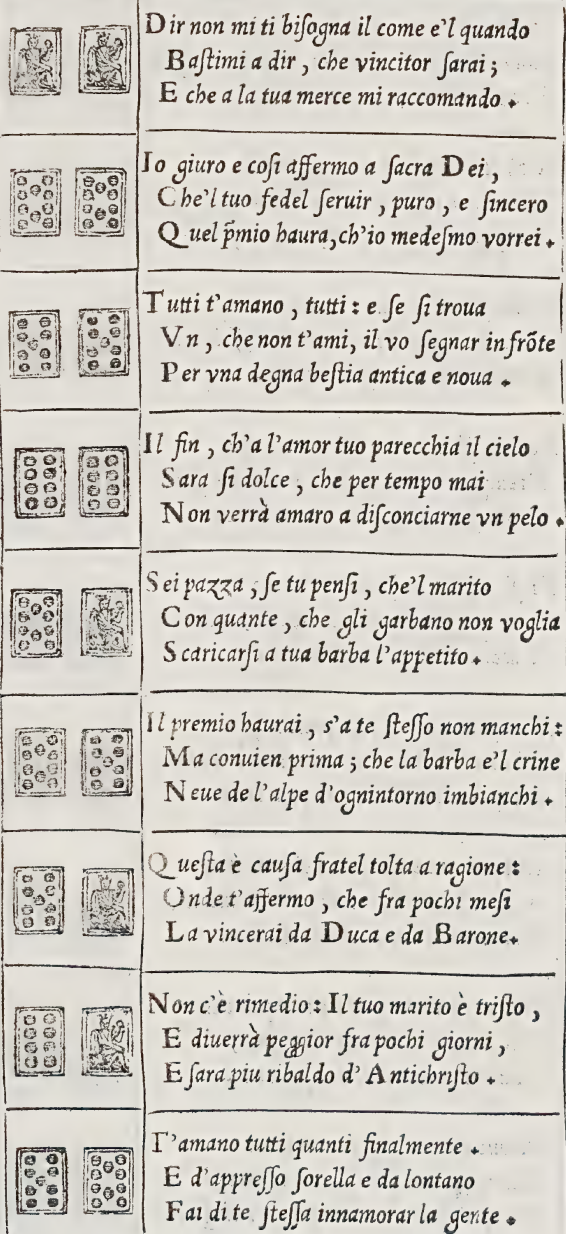 Dir non mi ti biſogna il come e'l quando
Baſtimi a dir, che vincitor ſarai;
E che a la tua merce mi raccomando.
Io giuro e coſi affermo a ſacra Dei,
Che'l tuo fedel ſeruir, puro, e ſincero
Quel p̄mio haura, ch'io medeſmo vorrei.
Tutti t'amano, tutti: e ſe ſi troua
Vn, che non t'ami, il vo ſegnar in frõte
Per vna degna beſtia antica e noua.
Il fin, ch'a l'amor tuo parecchia il cielo
Sara ſi dolce, che per tempo mai
Non verrà amaro a diſconciarne vn pelo.
Sei pazza, ſe tu penſi, che'l marito
Con quante, che gli garbano non voglia
Scaricarſi a tua barba l'appetito.
Il premio haurai, s'a te ſteſſo non manchi:
Ma conuien prima; che la barba e'l crine
Neue de l'alpe d'ognintorno imbianchi.
Queſta è cauſa fratel tolta a ragione:
Onde t'affermo, che fra pochi meſi
La vincerai da Duca e da Barone.
Non c'è rimedio: Il tuo marito è triſto,
E diuerrà peggior fra pochi giorni,
E ſara piu ribaldo d'Antichriſto.
T'amano tutti quanti finalmente.
E d'appreſſo ſorella e da lontano
Fai di te ſteſſa innamorar la gente.